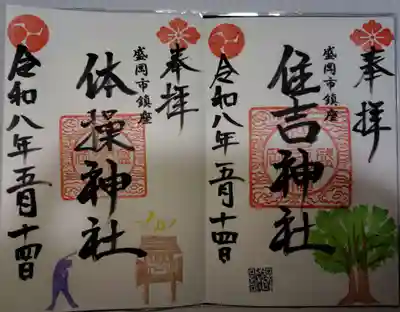 奉拝
盛岡市鎮座
住吉神社
令和八年五月十四日
奉拝
盛岡市鎮座
体操神社
令和八年五月十四日